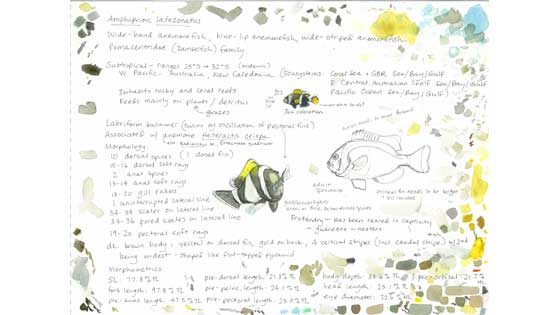 Amphiprion latezonatus
Wide-band anemonefish, blue-lip anemonefish, wide-striped anemonefish
Pomacentridae (Damselfish) family
Subtropical - ranges 25°S → 32°S
W. Pacific - Australia, New Caledonia (Ecosystems: Coral Sea + GBR Sea/Bay/Gulf
E Central Australian Shelf Sea/Bay/Gulf
Pacific Ocean Sea/Bay/Gulf)
Inhabits rocky and coral reefs
Feeds mainly on plants / detritus
grazes
Labriform swimmer (swims by oscillation of pectoral fins)
Associated w/ anemone Heteractis crispa
Morphology:
10 dorsal spines (1 dorsal fin)
15-16 dorsal soft rays
2 anal spines
13-14 anal soft rays
18-20 gill rakers
1 uninterrupted lateral line
scales on lateral line
pored scales on lateral line
19-20 pectoral soft rays
adult specimen
pectoral fin needs to be larger
Protandry - has been reared in captivity
guarders - nesters
dk. brown body, yellow on dorsal fin, gold on back, 4 vertical stripes (incl caudal stripe) w/ 2nd
being widest - shaped like flat-topped pyramid
Morphometrics:
SL: 77.8% TL pre-dorsal length: % TL body depth: % TL preorbital: 21.7%
fork length: 97.8% TL pre-pelvic length: % TL head length: 25.1% TL
pre-anal length: 47.5% TL pre-pectoral length: 25.0% TL eye diameter: % TL